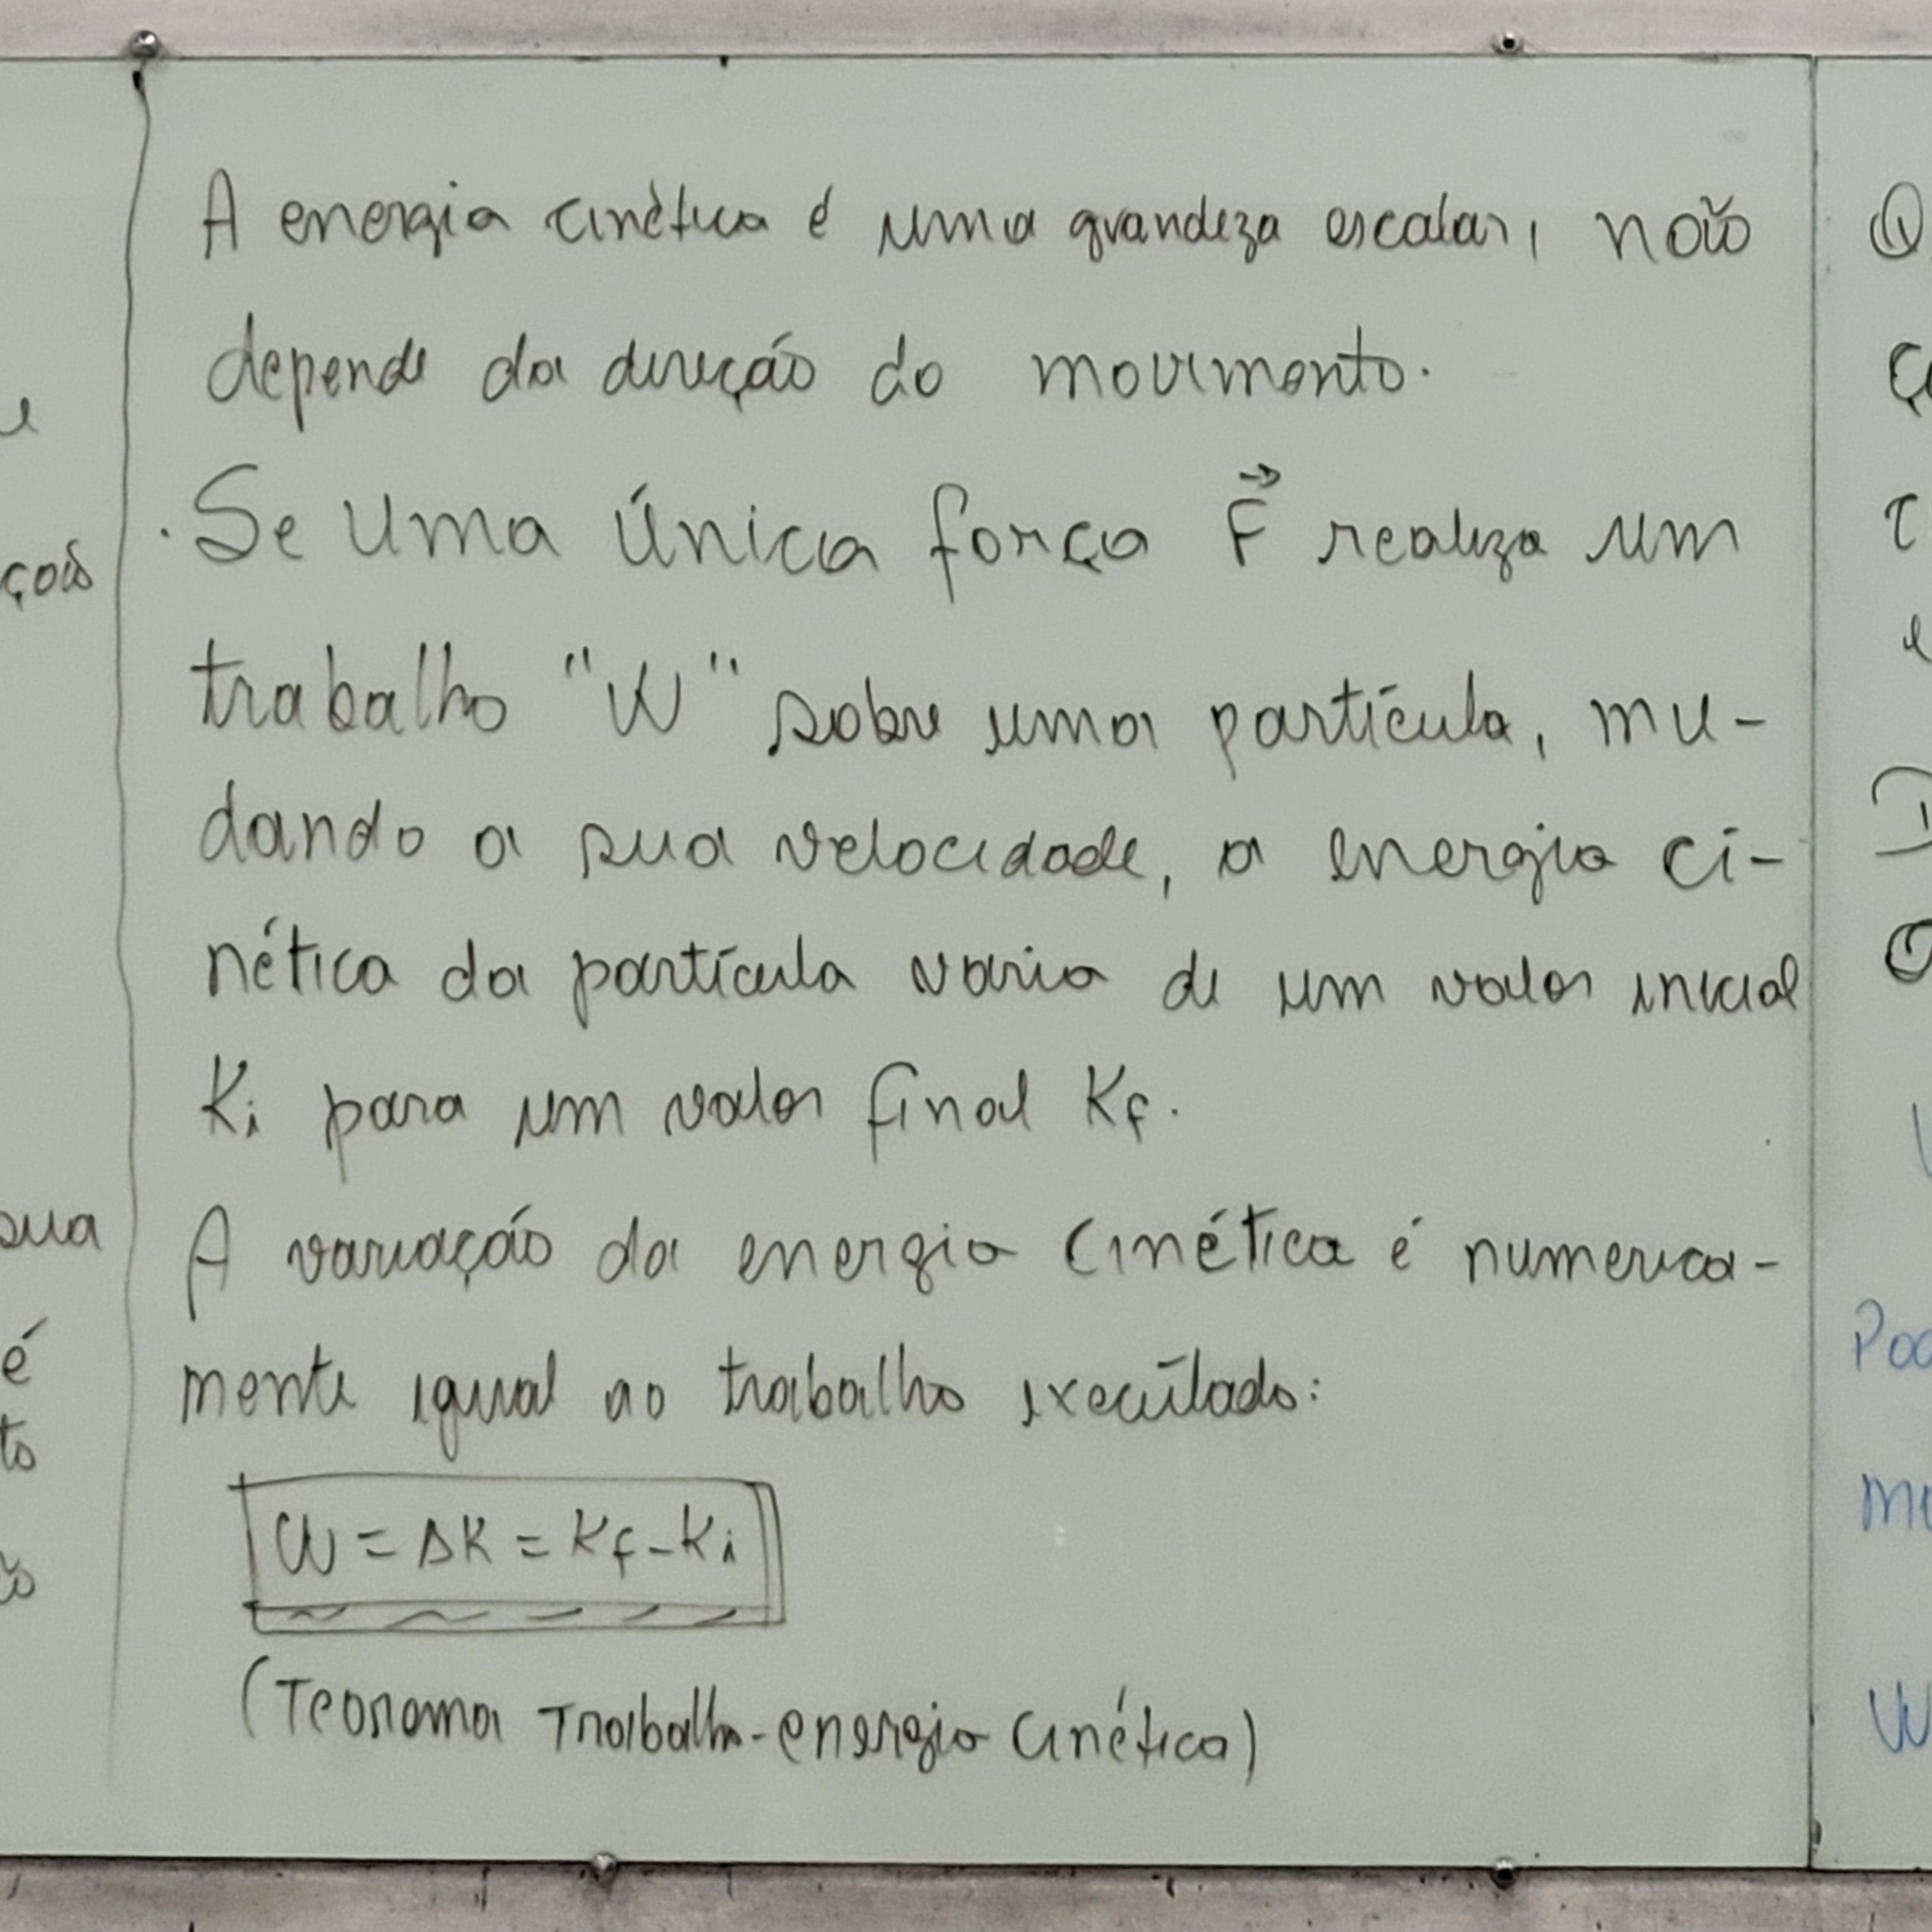 A energia cinética é uma grandeza escalar, não
depende da direção do movimento.
. Se uma única força F⃗ realiza um
trabalho "W" sobre uma partícula, mu-
dando a sua velocidade, a energia ci-
nética da partícula varia de um valor inicial
Ki para um valor final Kf.
A variação da energia cinética é numerica-
mente igual ao trabalho executado:
W = ΔK = Kf - Ki
(Teorema Trabalho-energia cinética)
sua
é
to